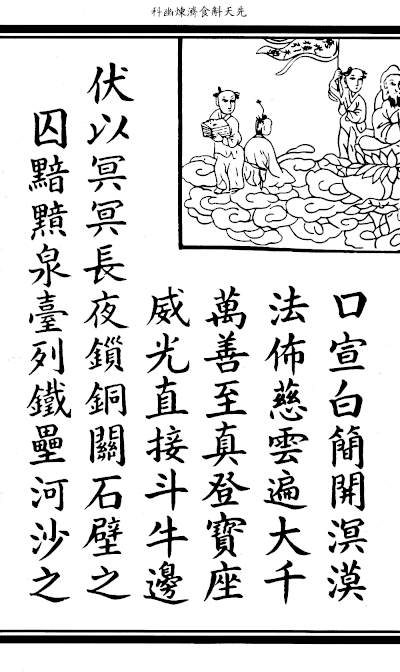 先天斛食濟煉幽科
口宣白簡開溟漠
法佈慈雲遍大千
萬善至真登寶座
威光直接斗牛邊
伏以冥冥長夜鎻銅關石壁之
囚黯黯泉臺列鐵壘河沙之